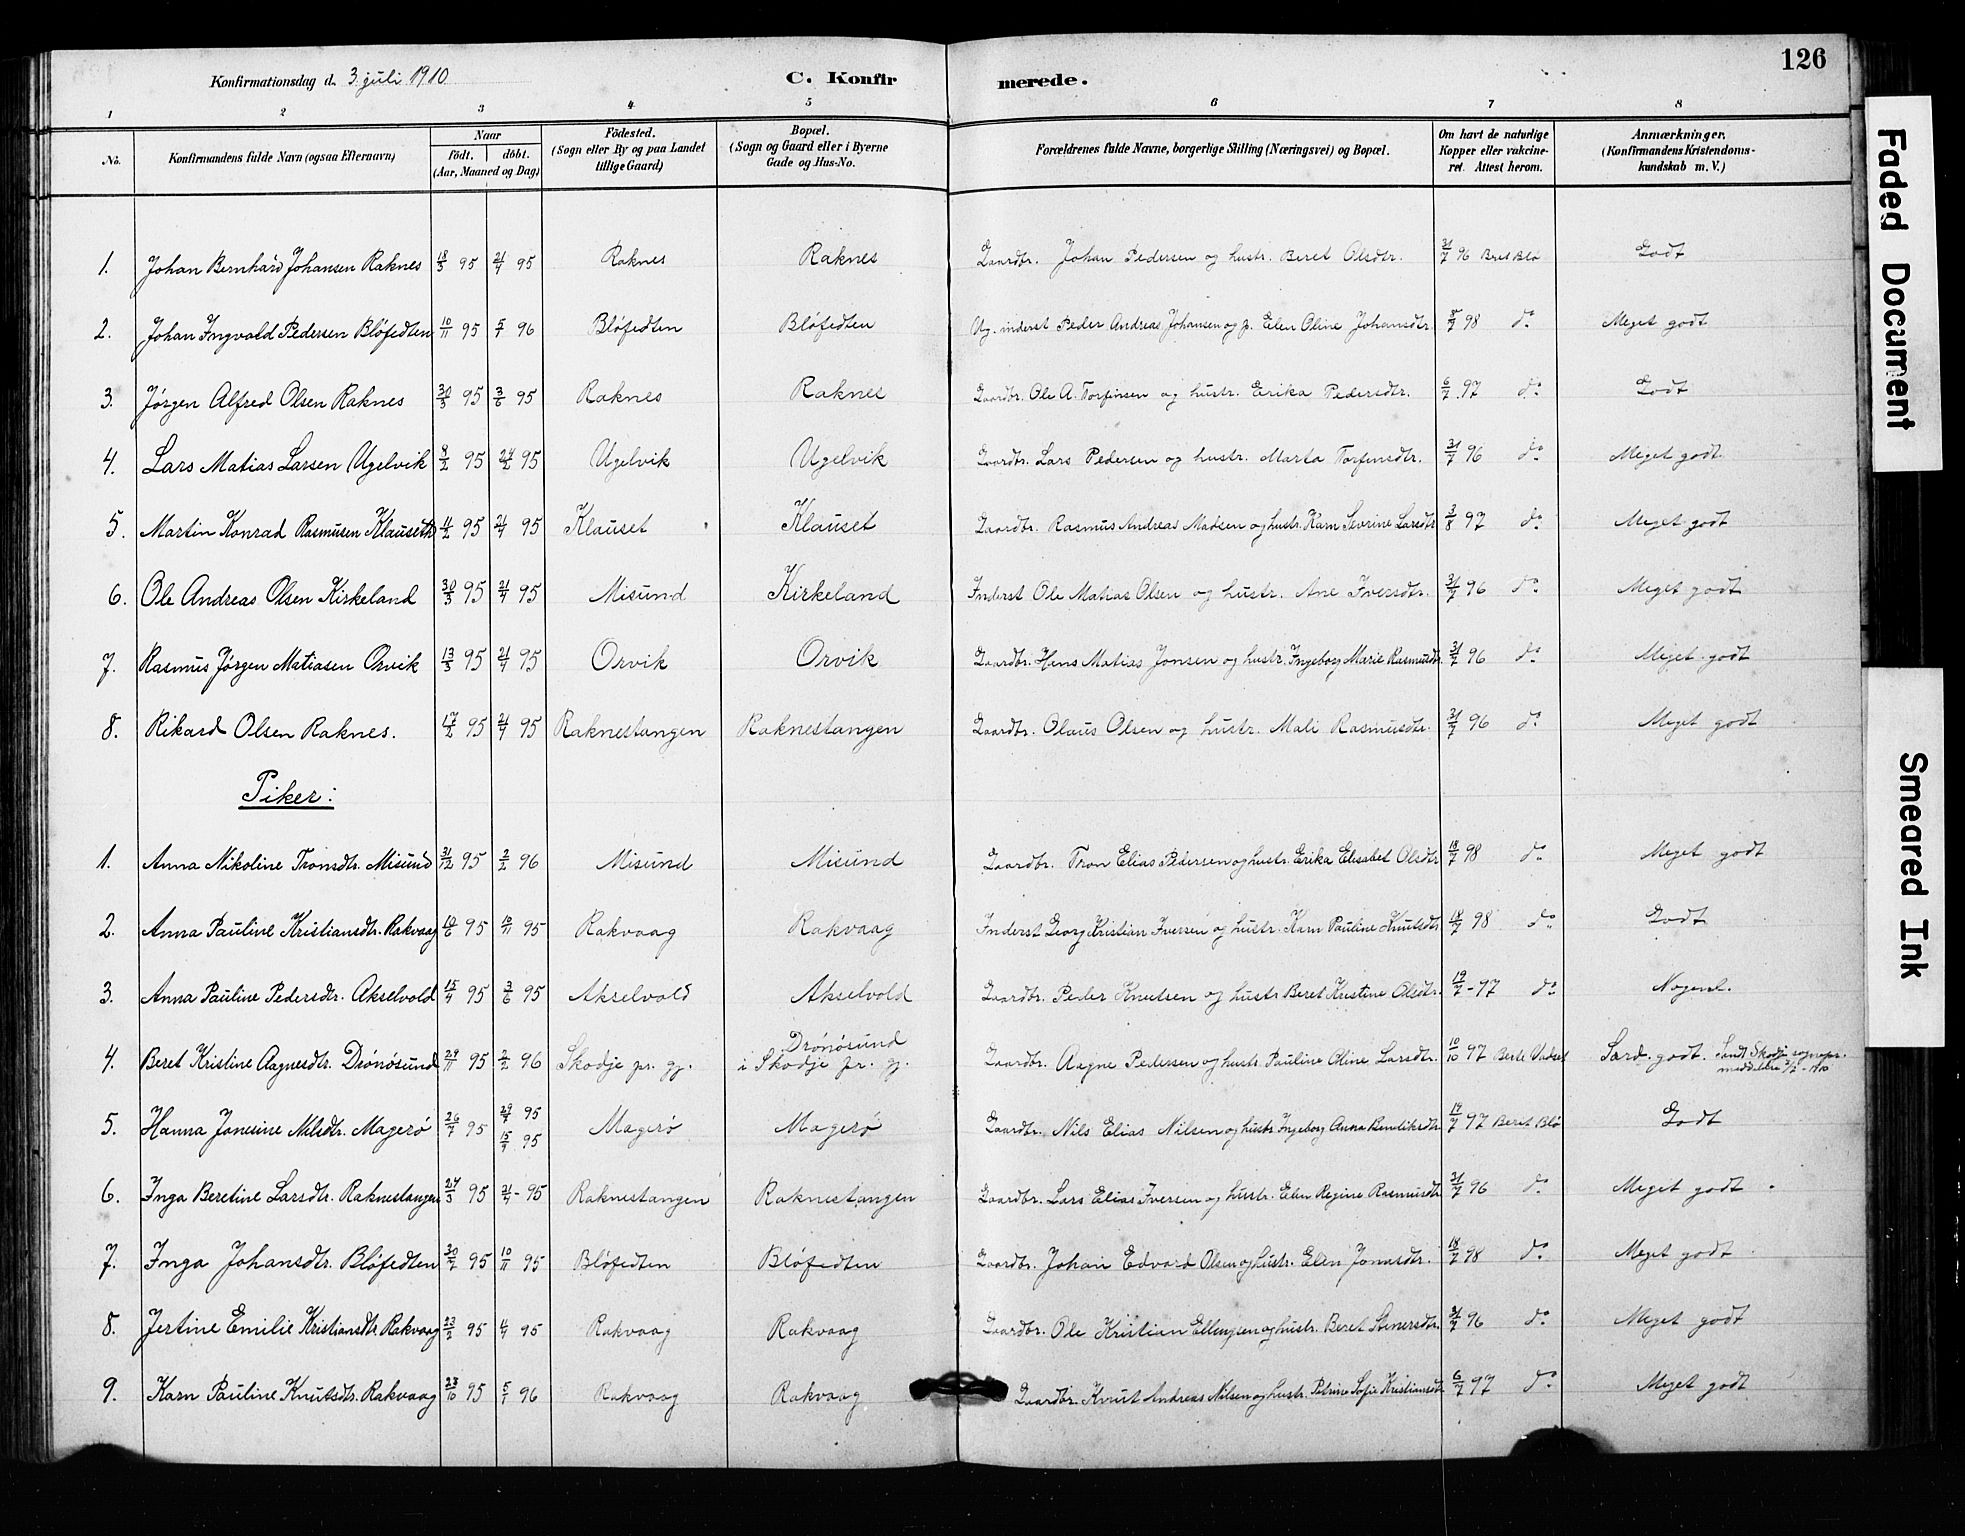 126
Konfirmationsdag d. 3. juli 1910
C. Konfirmerede.
1 2 3 4 5 6 7 8
No. Konfirmandens fulde Navn (ogsaa Efternavn) Naar födt. döbt. (Aar, Maaned og Dag) Födested. (Sogn eller By og paa Landet tillige Gaard) Bopæl. (Sogn og Gaard eller i Byerne Gade og Hus-No. Forældrenes fulde Navne, borgerlige Stilling (Næringsvei) og Bopæl. Om havt de naturlige Kopper eller vakcineret. Attest herom. Anmærkninger. (Konfirmandens Kristendomskundskab m. V.)
1. Johan Bernhard Johansen Raknes 18/3 95 21/4 95 Raknes Raknes Gaardbr. Johan Pedersen og hustr. Beret Olsdtr. 31/7 96 Godt
2. Johan Ingvald Pedersen Blöfedten 10/11 95 96 Blöfedten Blöfedten Ug. inderst Peder Andreas Johansen og p. Elen Oline Johansdtr. 98 do Meget godt
3. Jørgen Alfred Olsen Raknes 30/3 95 3/6 95 Raknes Raknes Gaardbr. Ole A. Torfinsen og hustr. Erika Pedersdtr. 6/7 97 do Godt
4. Lars Matias Larsen Ugelvik 8/2 95 24/2 95 Ugelvik Ugelvik Gaardbr. Lars Pedersen og hustr. Marta Torfinsdtr. 31/7 96 do Meget godt
5. Martin Konrad Rasmusen Klauseth 95 21/4 95 Klauset Klauset Gaardbr. Rasmus Andreas Madsen og hustr. Karn Sevrine Larsdtr 3/8 97 do Meget godt
6. Ole Andreas Olsen Kirkeland 30/3 95 21/4 95 Misund Kirkeland Inderst Ole Matias Olsen og hustr. Ane Iversdtr. 31/7 96 do Meget godt
7. Rasmus Jørgen Matiasen Orvik 13/3 95 21/4 95 Orvik Orvik Gaardbr. Hans Matias Jonsen og hustr. Ingeborg Marie Rasmusdtr. 31/7 96 do Meget godt
8. Rikard Olsen Raknes. 17/2 95 21/4 95 Raknestangen Raknestangen Gaardbr. Olaus Olsen og hustr. Mali Rasmusdtr. 31/7 96 do Meget godt
Piker:
1. Anna Nikoline Tronsdtr. Misund 31/12 95 2/2 96 Misund Misund Gaardbr. Tron Elias Pedersen og hustr. Erika Elisabet Olsdtr 18/7 98 do Meget godt
2. Anna Pauline Kristiansdtr. Rakvaag 95 10/11 95 Rakvaag Rakvaag Inderst Georg Kristian Iversen og hustr. Karn Pauline Knutsdtr 18/7 98 do Godt
3. Anna Pauline Pedersdtr. Akselvold 15/4 95 3/6 95 Akselvold Akselvold Gaardbr. Peder Knutsen og hustr Beret Kristine Olsdtr. 19/7 - 97 do
4. Beret Kristine Aagnesdtr. Drönösund 29/11 95 2/2 96 Skodje pr. gj. Drönösund i Skodje pr. gj. Gaardbr. Aagne Pedersen og hustr. Pauline Oline Larsdtr. 10/10 97 Særd. godt.
5. Hanna Jonesine Nilsdtr. Magerø 26/7 95 29/7 95 15/9 95 Magerø Magerø Gaardbr. Nils Elias Nilsen og hustr. Ingeborg Anna Bendiksdtr 19/7 97 Berit Blø Godt
6. Inga Beretine Larsdtr. Raknestangen 24/3 95 21/4 - 95 Raknestangen Raknestangen Gaardbr. Lars Elias Iversen og hustr. Elen Regine Rasmusdtr 31/7 96 do Meget godt
7. Inga Johansdtr. Blöfedten 30/7 95 10/11 95 Blöfedten Blöfedten Gaardbr. Johan Edvard Olsen og hustr. Elen Jonasdtr. 18/7 98 do Meget godt
8. Jertine Emilie Kristiansdtr. Rakvaag 23/2 95 95 Rakvaag Rakvaag Gaardbr. Ole Kristian Ellingsen og hustr. Beret Stenersdtr. 31/7 96 do Meget godt
9. Karn Pauline Knutsdtr. Rakvaag 23/10 95 5/1 96 Rakvaag Rakvaag Gaardbr. Knut Andreas Nilsen og hustr. Petrine Sofie Kristiansdtr 6/7 97 do Meget godt
Faded Document
Smeared Ink